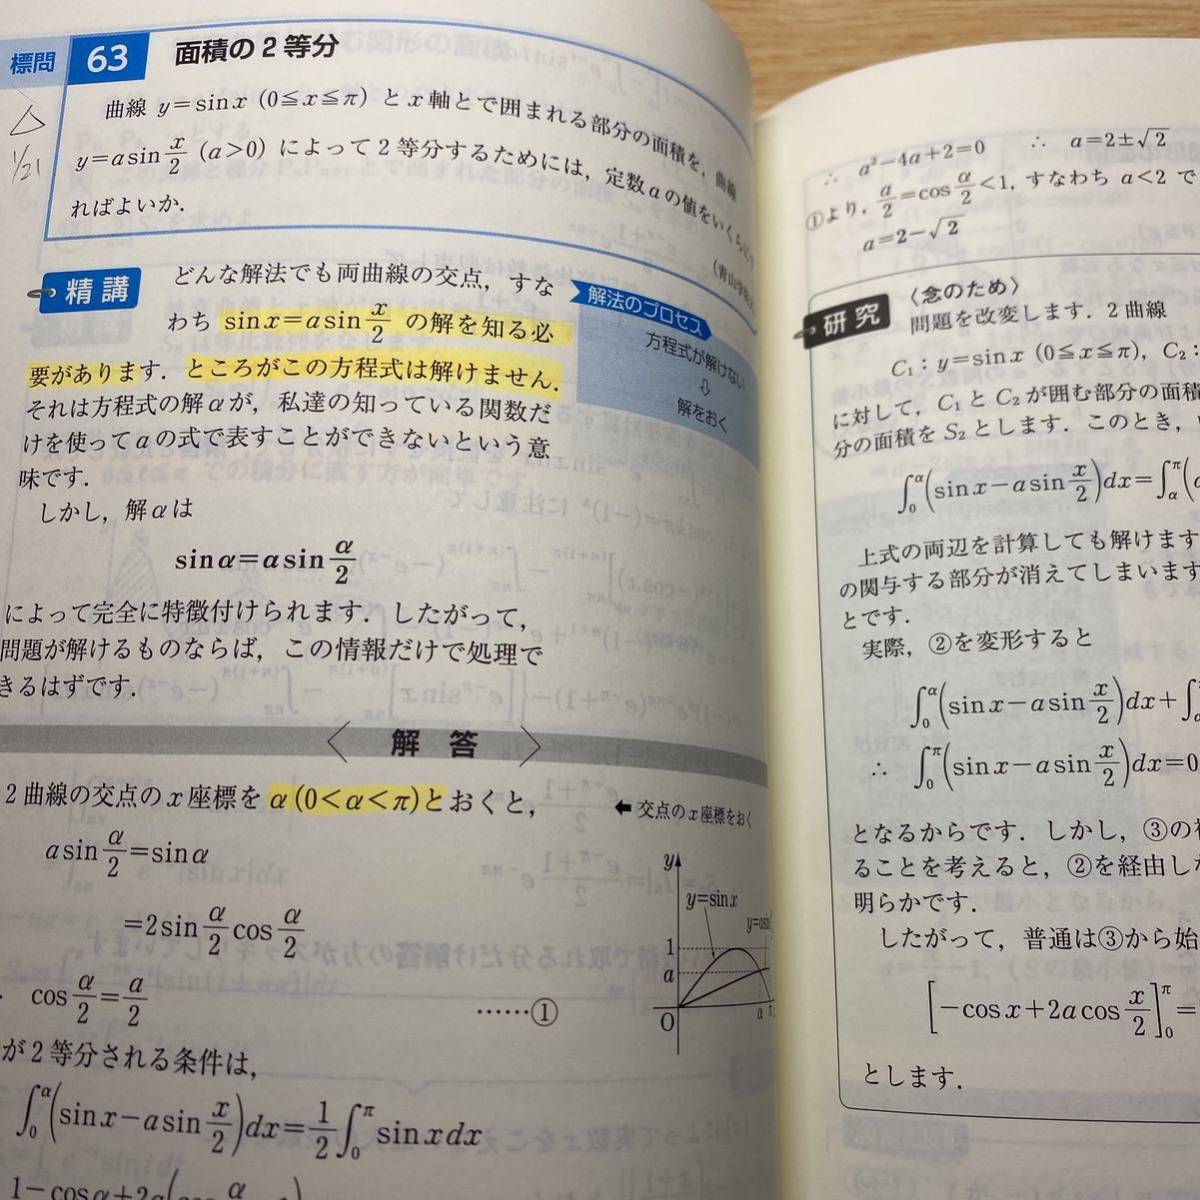 標問 63 面積の2等分
曲線 y=sinx (0≦x≦π) とx軸とで囲まれる部分の面積を, 曲線
y=asin x/2 (a>0) によって2等分するためには, 定数aの値をいくらに
ればよいか.
(青山学
△
1/21
精講
どんな解法でも両曲線の交点, すな
わち sinx=asin x/2 の解を知る必
要があります. ところがこの方程式は解けません.
それは方程式の解αが, 私達の知っている関数だ
けを使ってaの式で表すことができないという意
味です.
しかし, 解αは
sinα=asin α/2
によって完全に特徴付けられます. したがって,
問題が解けるものならば, この情報だけで処理で
きるはずです.
解法のプロセス
方程式が解けない
⇩
解をおく
〈 解 答 〉
2曲線の交点のx座標をα(0<α<π)とおくと,
← 交点のx座標をおく
asin α/2=sinα
=2sin α/2 cos α/2
cos α/2=a/2 ……①
が2等分される条件は,
∫₀^α(sinx-asin x/2)dx=1/2∫₀^π sinxdx
1-cosα+2a(cos α
y
y=sinx
y=asin
1
a
O
α
∴ a²-4a+2=0 ∴ a=2±√2
①より, a/2=cos α/2<1, すなわち a<2 で
a=2-√2
研究
〈念のため〉
問題を改変します. 2曲線
C₁: y=sinx (0≦x≦π), C₂:
に対して, C₁とC₂が囲む部分の面積
分の面積をS₂とします. このとき,
∫₀^α(sinx-asin x/2)dx=∫α^π(a
上式の両辺を計算しても解けます
の関与する部分が消えてしまいます
とです.
実際, ②を変形すると
∫₀^α(sinx-asin x/2)dx+∫
∴ ∫₀^π(sinx-asin x/2)dx=0
となるからです. しかし, ③の
ることを考えると, ②を経由し
明らかです.
したがって, 普通は③から始
[-cosx+2acos x/2]₀^π=
とします.